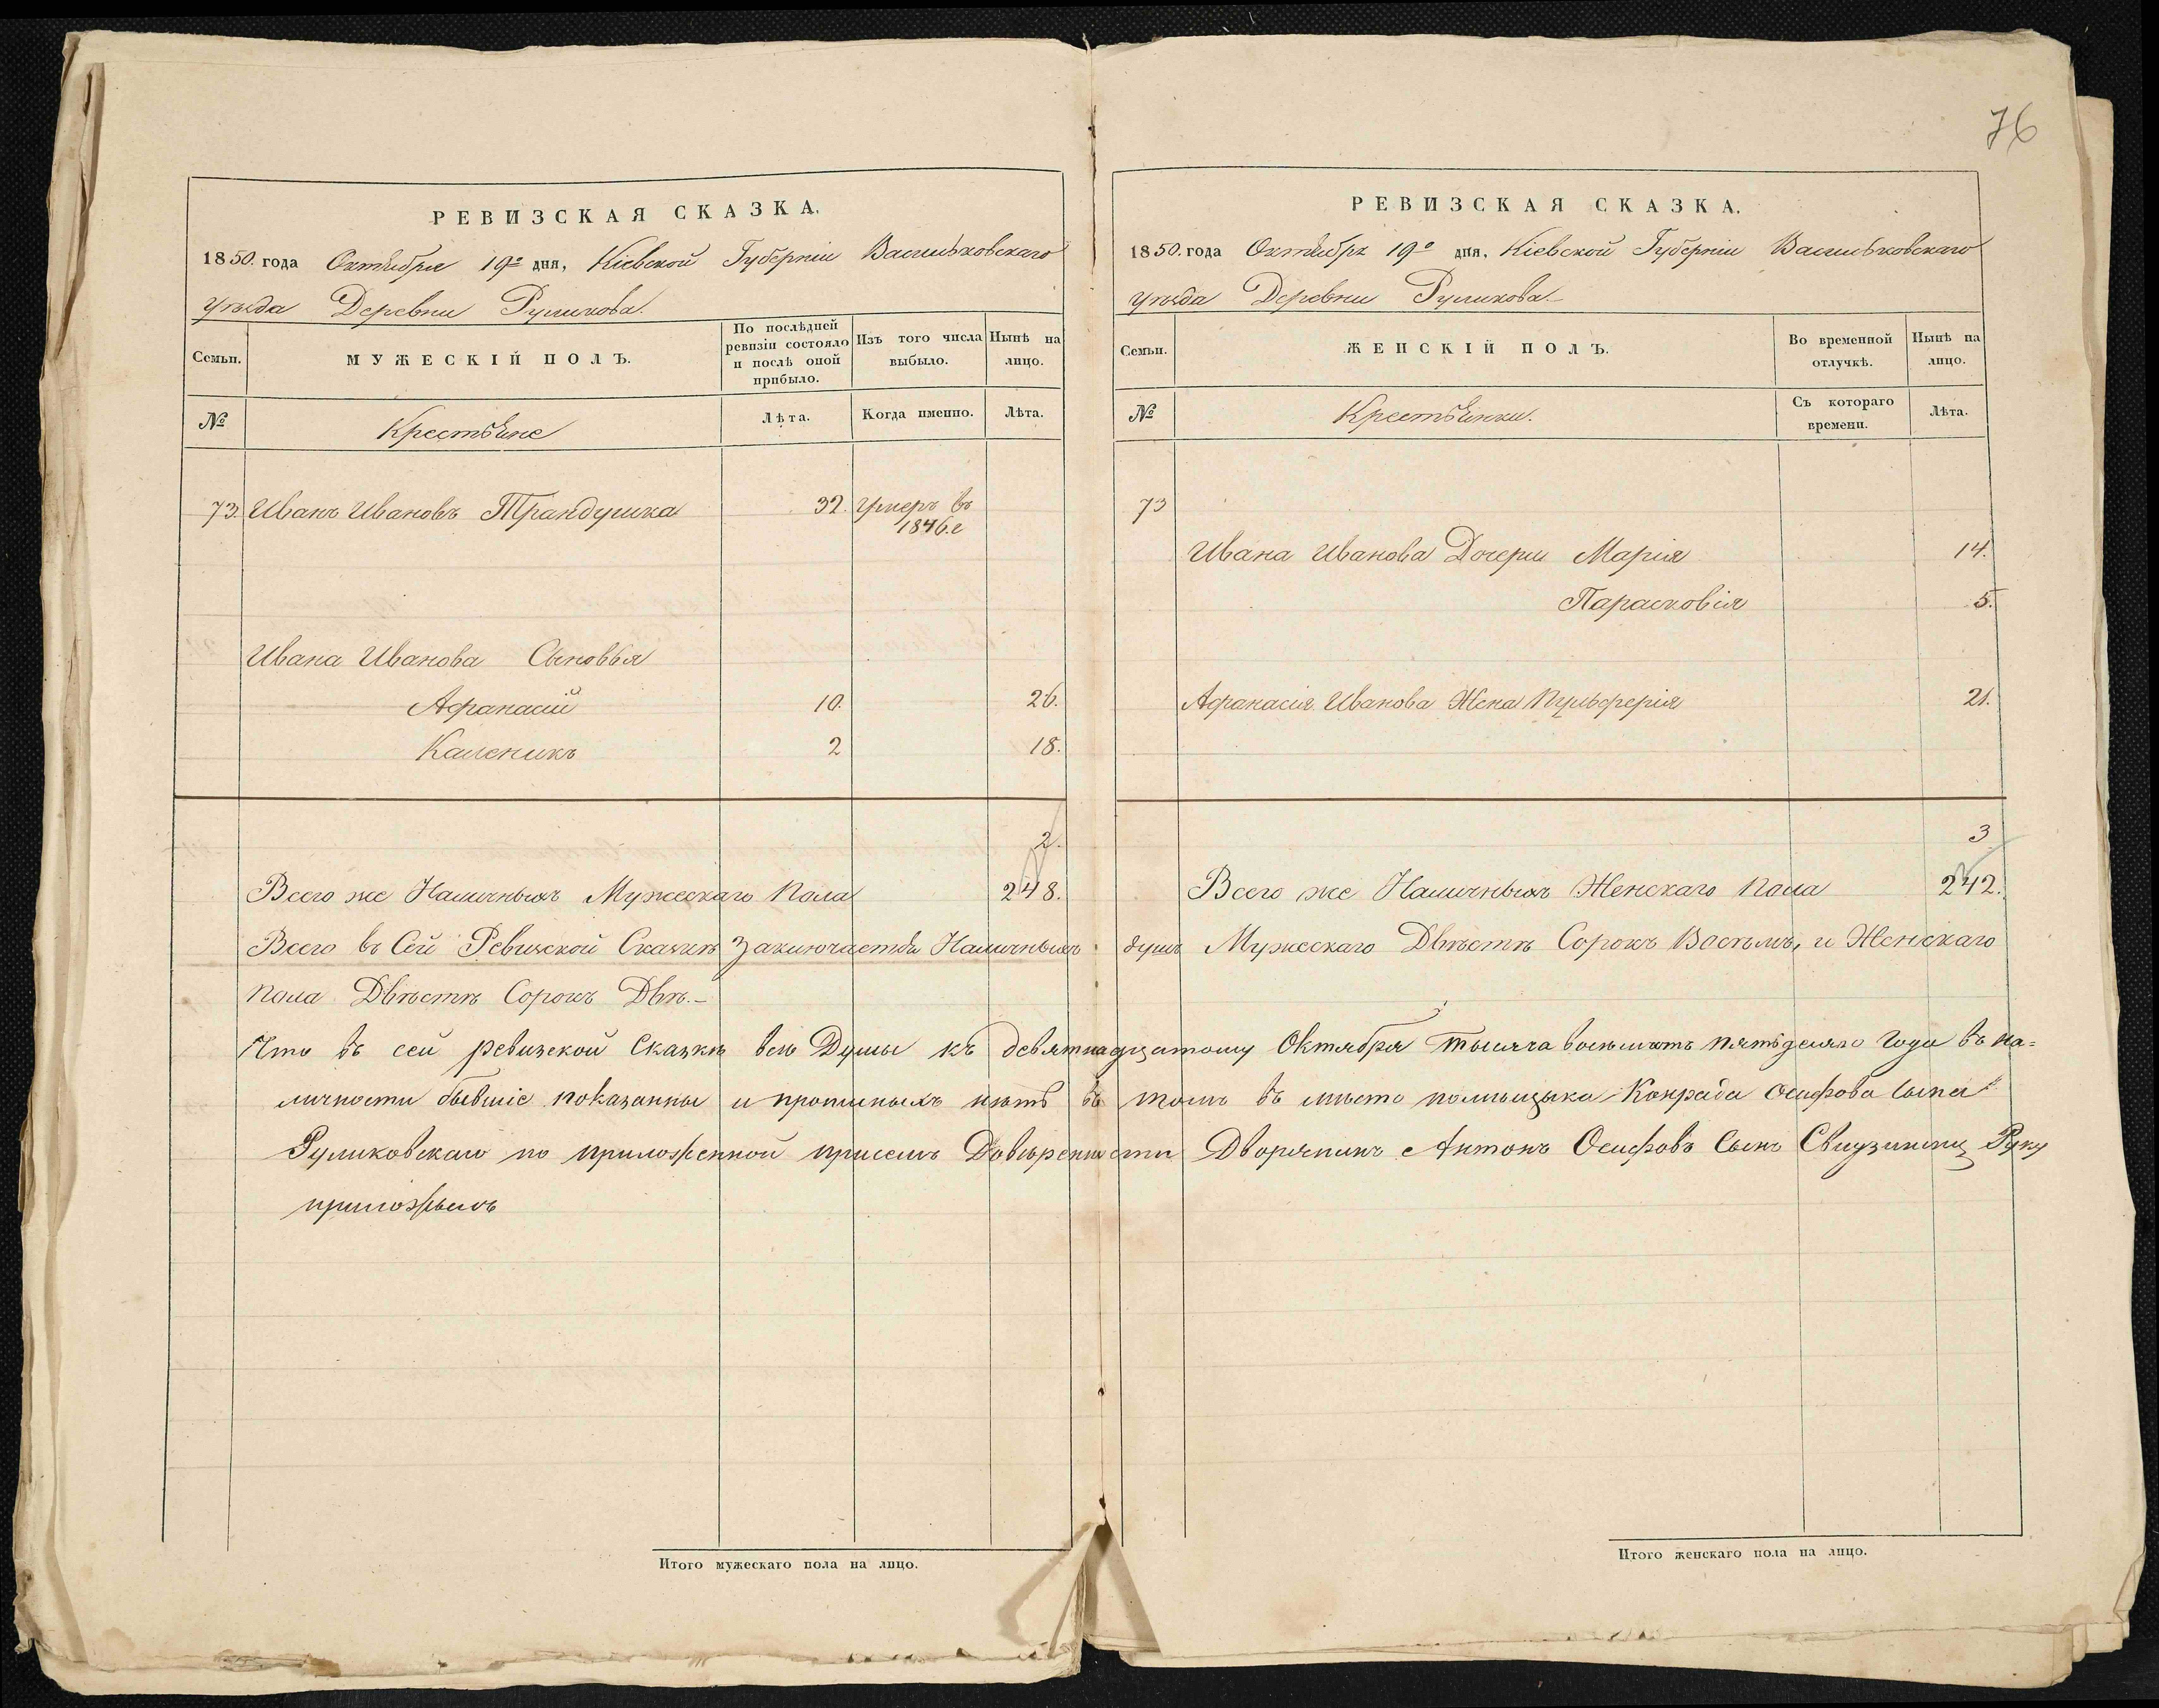 76
РЕВИЗСКАЯ СКАЗКА.
1850. года Октября 19го дня, Кіевской Губерніи Васильковскаго
уѣзда Деревни Руликова.
Семьи.
МУЖЕСКІЙ ПОЛЪ.
По послѣдней
ревизіи состояло
и послѣ оной
прибыло.
Изъ того числа
выбыло.
Нынѣ на
лицо.
№
Крестьяне
Лѣта.
Когда именно.
Лѣта.
73. Иванъ Ивановъ Трандушка 32. Умеръ въ
1846.е
Ивана Иванова Сыновья
Афанасій 10. 26.
Каленикъ 2 18.
2.
Всего же Наличныхъ Мужескаго Пола 248.
РЕВИЗСКАЯ СКАЗКА.
1850. года Октября 19го дня, Кіевской Губерніи Васильковскаго
уѣзда Деревни Руликова
Семьи.
ЖЕНСКІЙ ПОЛЪ.
Во временной
отлучкѣ.
Нынѣ на
лицо.
№
Крестьянки.
Съ котораго
времени.
Лѣта.
73
Ивана Иванова Дочери Марія 14.
Парасковія 5.
Афанасія Иванова Жена Пульферія 21.
3
Всего же Наличныхъ Женскаго Пола 242.
Всего въ Сей Ревизской Сказкѣ Заключается Наличныхъ душъ Мужескаго Двѣстѣ Сорокъ Восемь, и Женскаго
пола Двѣстѣ Сорокъ Двѣ.—
Что въ сей ревизской Сказкѣ всѣ Души къ девятнадцатому Октября тысяча восемсотъ пятьдесяго года въ на=
личности бывшіе показанны и прописныхъ нѣтъ въ томъ въ мѣсто помѣщыка Конрада Осифова сына
Руликовскаго по приложенной присемъ Довѣренности Дворянинъ Антонъ Осифовъ Сынъ Руку
приложылъ
Итого мужескаго пола на лицо.
Итого женскаго пола на лицо.